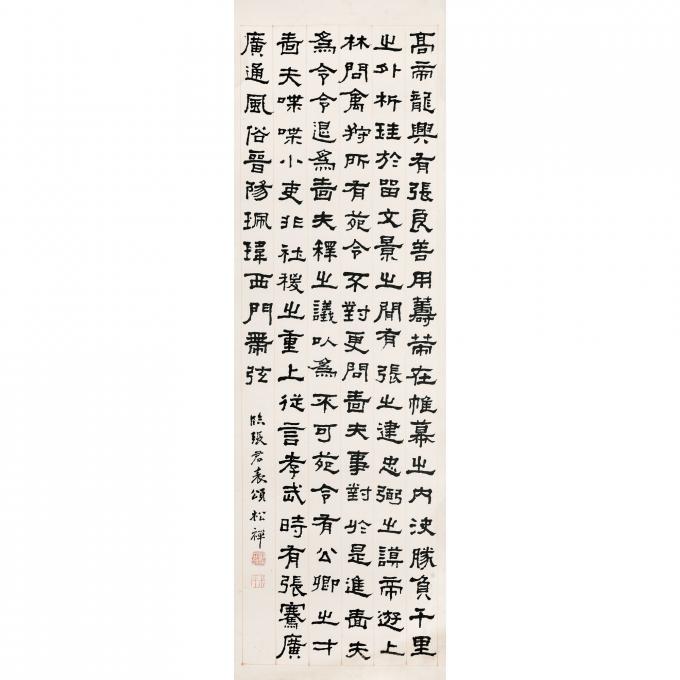 高帝龍興有張良善用籌策在帷幕之內決勝負千里
之外析珪於留文景之閒有張之建忠弼之謨帝遊上
林問禽狩所有苑令不對更問嗇夫事對於是進嗇夫
為令令退為嗇夫釋之議以為不可苑令有公卿之才
嗇夫喋喋小吏非社稷之重上從言孝武時有張騫廣
廣通風俗晉陽珮瑋西門帶弦
臨張君表頌 松禪